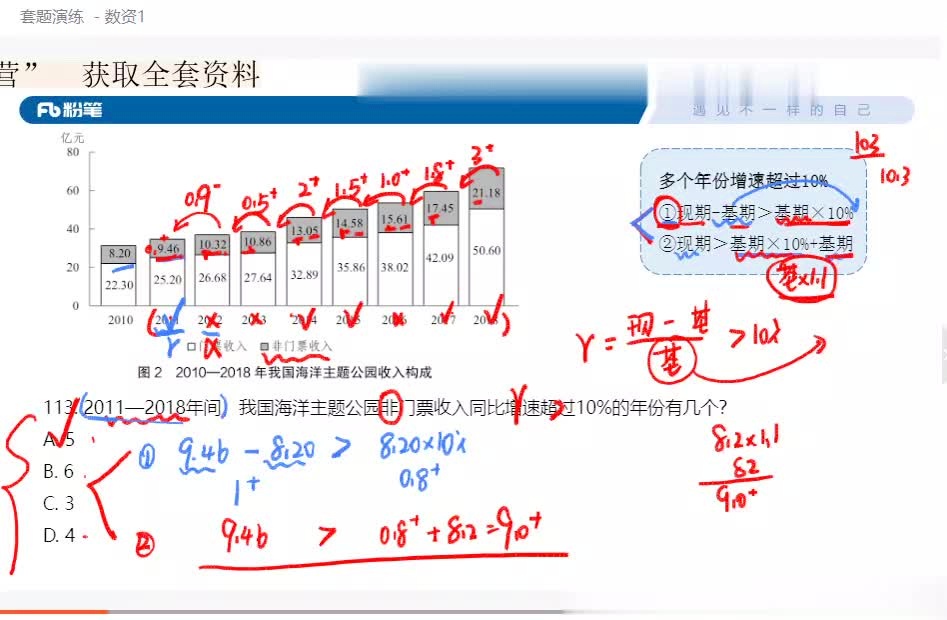 套题演练 - 数资1
营” 获取全套资料
粉笔
遇见不一样的自己
亿元
80
60
40
20
0
8.20 9.46 10.32 10.86 13.05 14.58 15.61 17.45 21.18
22.30 25.20 26.68 27.64 32.89 35.86 38.02 42.09 50.60
2010 2011 2012 2013 2014 2015 2016 2017 2018
门票收入 非门票收入
图 2 2010—2018 年我国海洋主题公园收入构成
0.9⁻ 0.5⁺ 2⁺ 1.5⁺ 1.0⁺ 1.8⁺ 3⁺
103
10.3
多个年份增速超过10%
①现期-基期＞基期×10%
②现期＞基期×10%+基期
基×1.1
r = 现 - 基 / 基 > 10%
113.(2011—2018年间) 我国海洋主题公园非门票收入同比增速超过10%的年份有几个?
A. 5
B. 6
C. 3
D. 4
① 9.46 - 8.20 > 8.20×10%
1⁺ 0.8⁺
② 9.46 > 0.8⁺ + 8.2 = 9.0⁺
8.2×1.1
82
9.0⁺